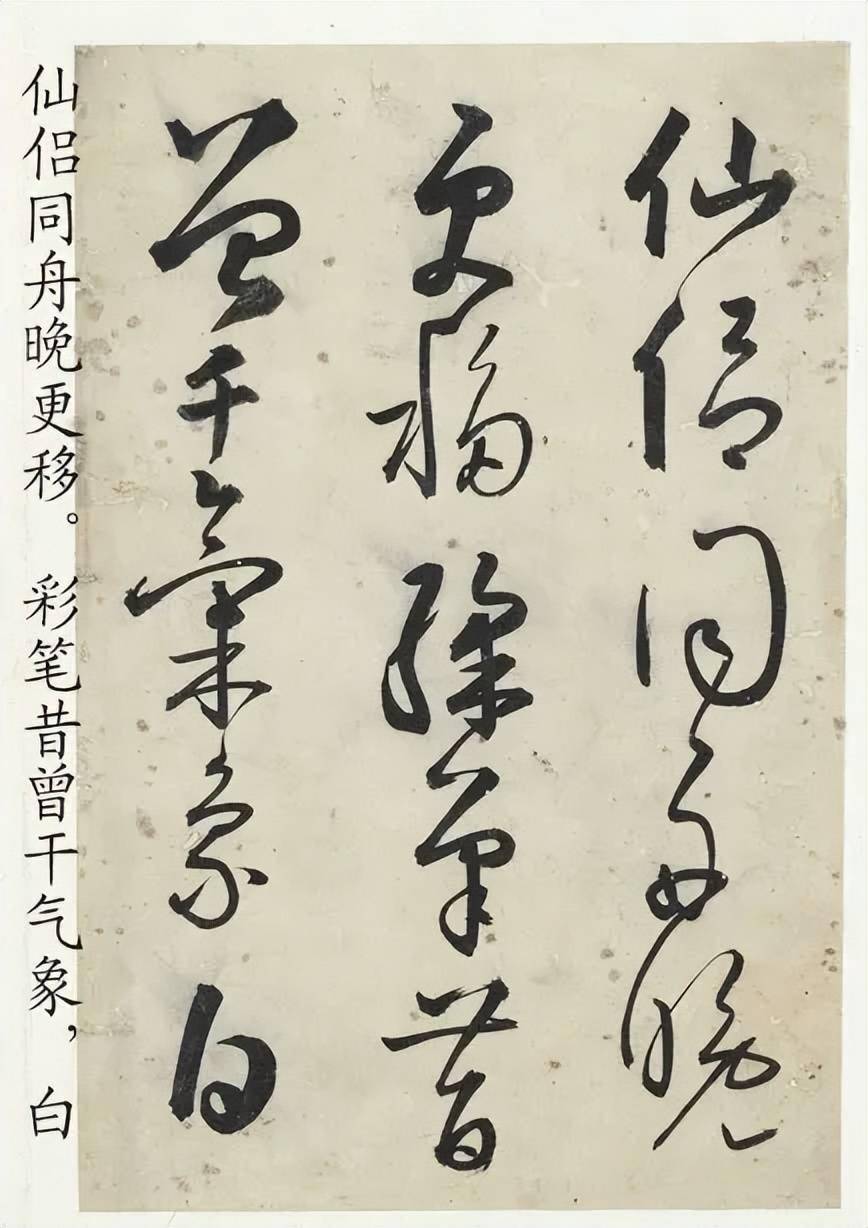 仙侣同舟晚
更移綵筆昔
曾干氣象白
仙侣同舟晚更移。彩笔昔曾干气象，白